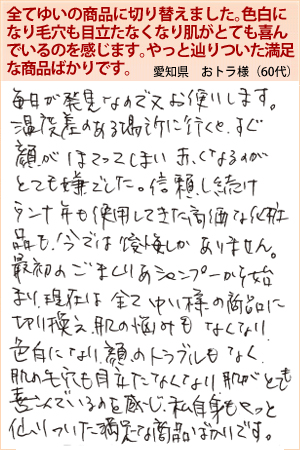 全てゆいの商品に切り替えました。色白に
なり毛穴も目立たなくなり肌がとても喜ん
でいるのを感じます。やっと辿りついた満足
な商品ばかりです。
愛知県 おトラ様(60代)
毎日が発見なので又お便りします。
温度差のある場所に行くと、すぐ
顔がほてってしまい赤くなるのが
とても嫌でした。信頼し続け
何十年も使用してきた高価な化粧
品も、今では後悔しかありません。
最初のごましりあシャンプーから始
まり、現在は全てゆい様の商品に
切り換え、肌の悩みもなくなり、
色白になり、顔のトラブルもなく、
肌の毛穴も目立たなくなり、肌がとても
喜んでいるのを感じ、私自身もやっと
辿りついた満足な商品ばかりです。